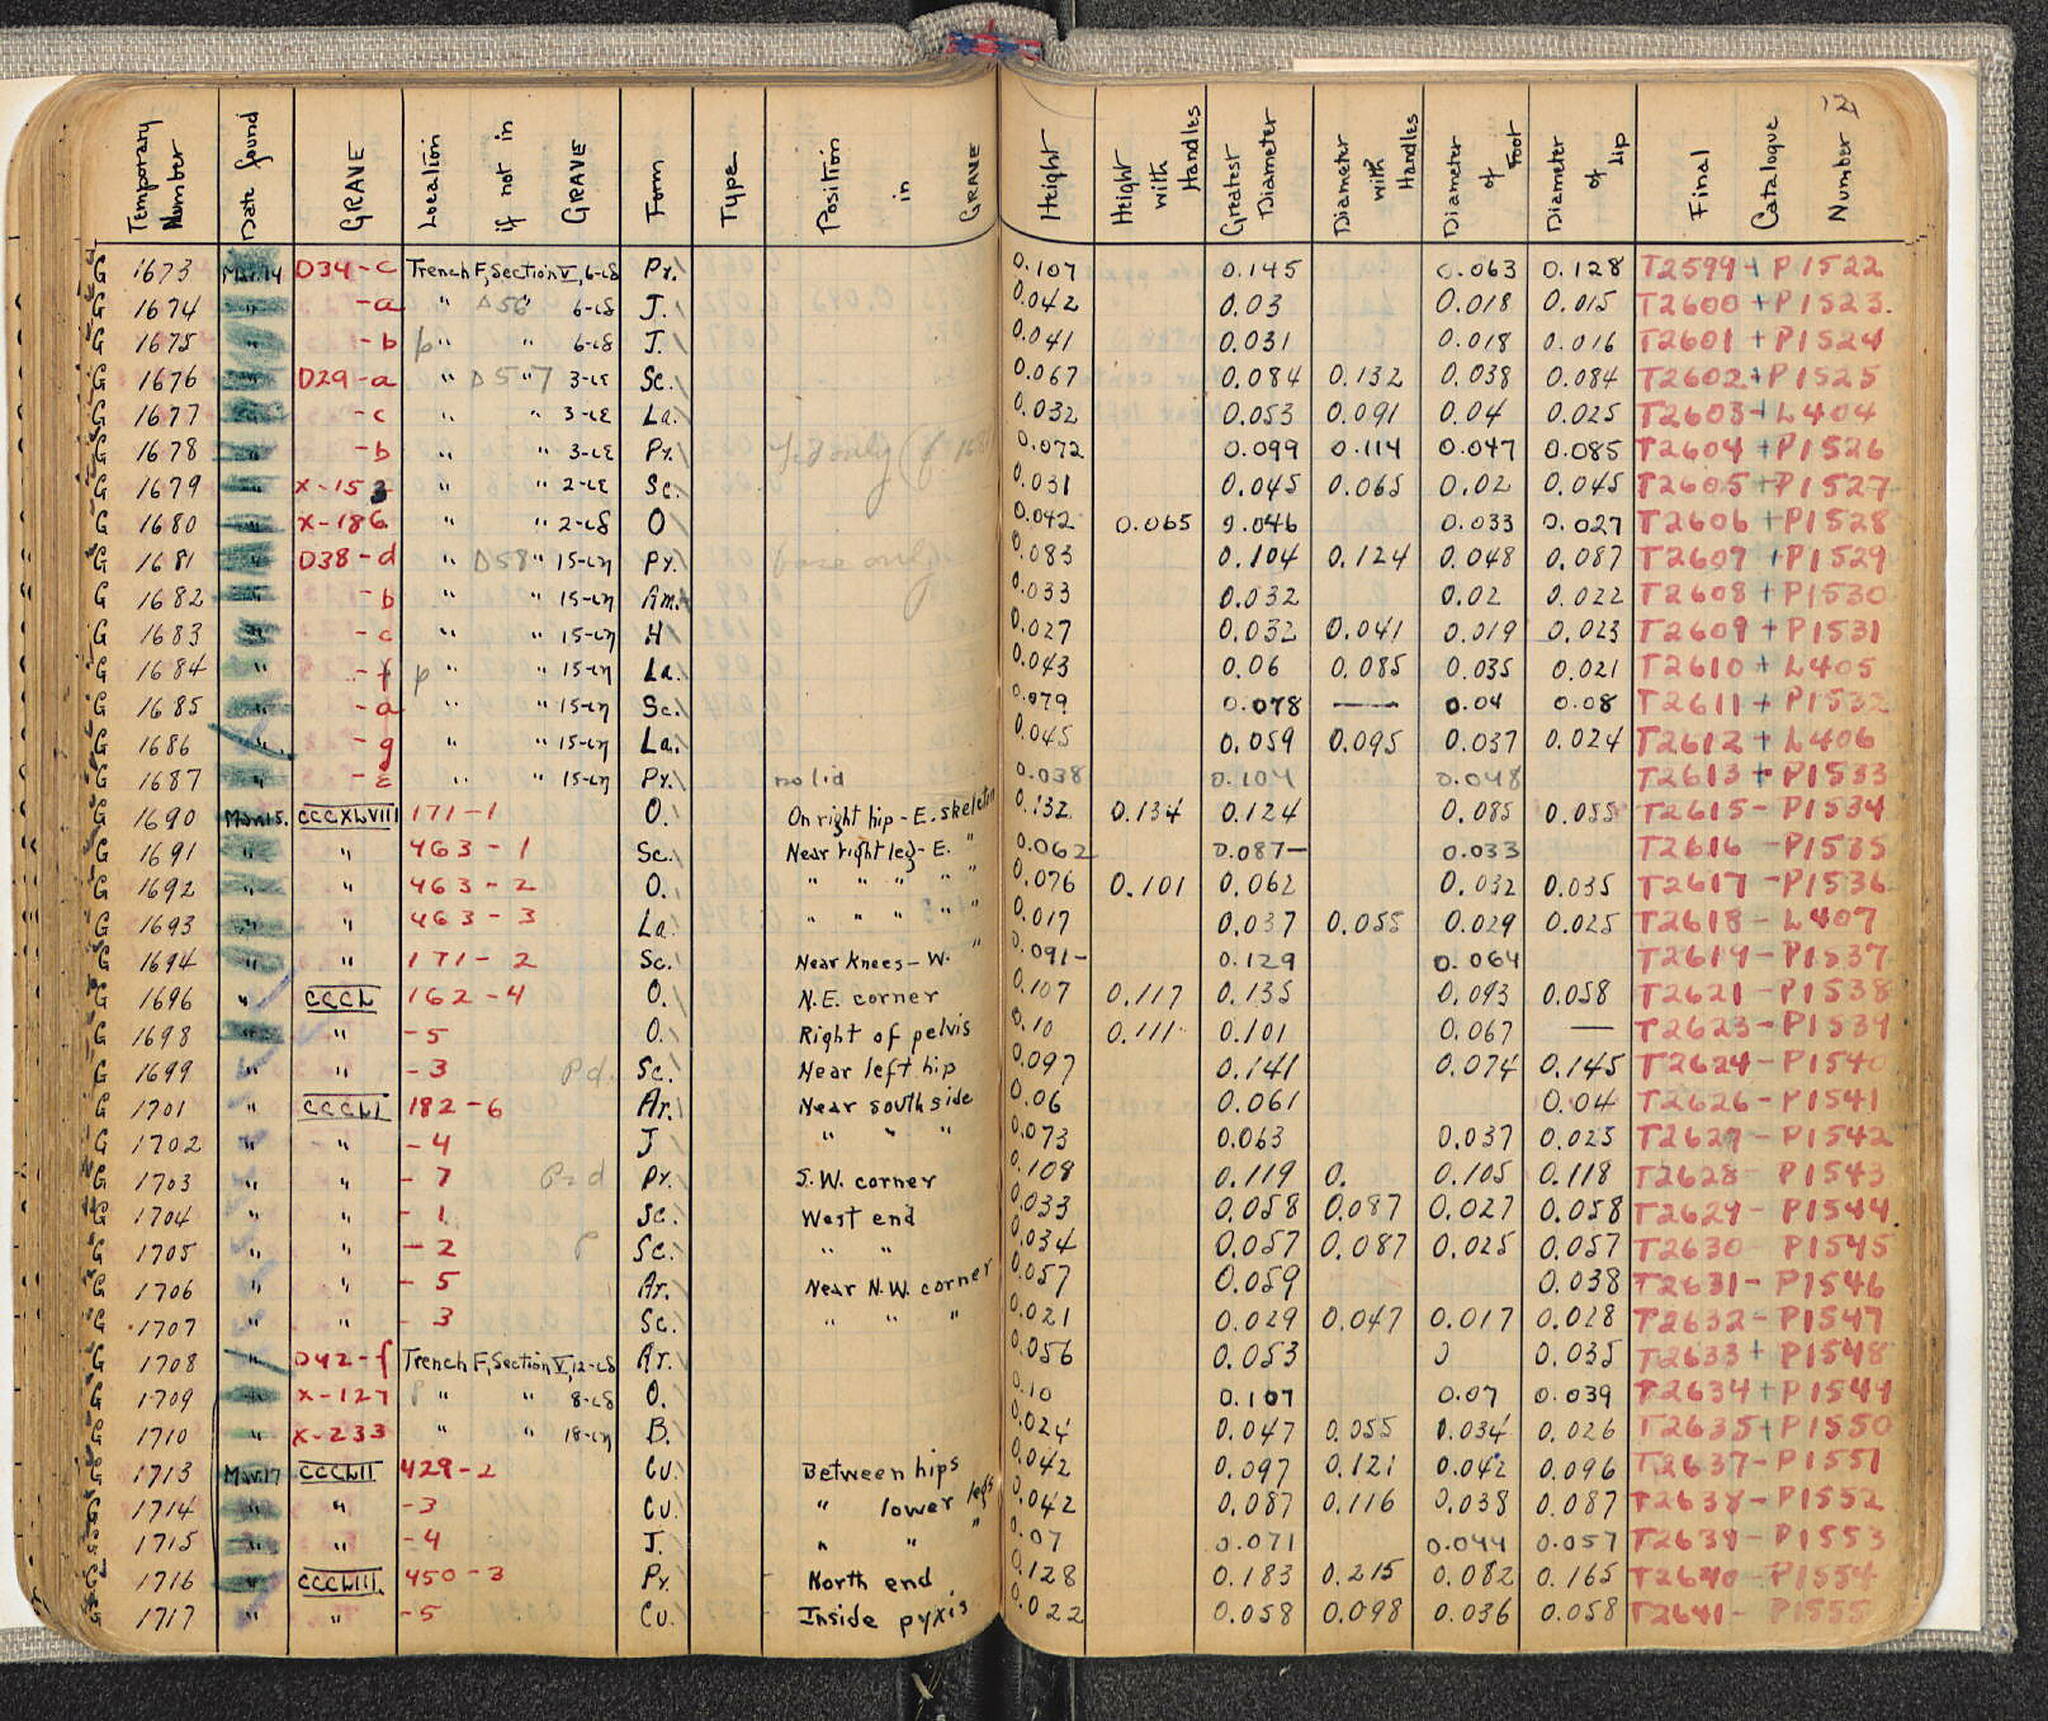 Temporary Number | Date found | GRAVE | Location if not in GRAVE | Form | Type | Position in GRAVE | Height | Height with Handles | Greatest Diameter | Diameter with Handles | Diameter of Foot | Diameter of Lip | Final Catalogue Number
G 1673 Mar.14 D34-c Trench F, Section V, 6-ιδ Py. 0.107 0.145 0.063 0.128 T2599+P1522
G 1674 " -a " Δ56 " 6-ιδ J. 0.042 0.03 0.018 0.015 T2600+P1523.
G 1675 " -b p " " 6-ιδ J. 0.041 0.031 0.018 0.016 T2601+P1524
G 1676 " D29-a " Δ57 " 3-ιε Sc. 0.067 0.084 0.132 0.038 0.084 T2602+P1525
G 1677 " -c " " 3-ιε La. 0.032 0.053 0.091 0.04 0.025 T2603-L404
G 1678 " -b " " 3-ιε Py. Lid only 0.072 0.099 0.114 0.047 0.085 T2604+P1526
G 1679 " X-153 " " 2-ιε Sc. 0.031 0.045 0.065 0.02 0.045 T2605+P1527
G 1680 " X-186 " " 2-ιδ O 0.042 0.065 0.046 0.033 0.027 T2606+P1528
G 1681 " D38-d " Δ58 " 15-ιη Py. base only 0.083 0.104 0.124 0.048 0.087 T2607+P1529
G 1682 " -b " " 15-ιη Am. 0.033 0.032 0.02 0.022 T2608+P1530
G 1683 " -c " " 15-ιη H 0.027 0.032 0.041 0.019 0.023 T2609+P1531
G 1684 " -f p " " 15-ιη La. 0.043 0.06 0.085 0.035 0.021 T2610+L405
G 1685 " -a " " 15-ιη Sc. 0.079 0.078 — 0.04 0.08 T2611+P1532
G 1686 " -g " " 15-ιη La. 0.045 0.059 0.095 0.037 0.024 T2612+L406
G 1687 " -e " " 15-ιη Py. no lid 0.038 0.104 0.048 T2613+P1533
G 1690 Mar.15. CCCXLVIII 171-1 O. On right hip - E. skeleton 0.132 0.134 0.124 0.085 0.055 T2615-P1534
G 1691 " " 463-1 Sc. Near right leg - E. " 0.062 0.087- 0.033 T2616-P1535
G 1692 " " 463-2 O. " " " " " 0.076 0.101 0.062 0.032 0.035 T2617-P1536
G 1693 " " 463-3 La. " " " " " 0.017 0.037 0.055 0.029 0.025 T2618-L407
G 1694 " " 171-2 Sc. Near knees - W. " 0.091- 0.129 0.064 T2619-P1537
G 1696 " CCCL 162-4 O. N.E. corner 0.107 0.117 0.135 0.093 0.058 T2621-P1538
G 1698 " " -5 O. Right of pelvis 0.10 0.111 0.101 0.067 — T2623-P1539
G 1699 " " -3 Pd. Sc. Near left hip 0.097 0.141 0.074 0.145 T2624-P1540
G 1701 " CCCLI 182-6 Ar. Near south side 0.06 0.061 0.04 T2626-P1541
G 1702 " " -4 J " " " 0.073 0.063 0.037 0.025 T2627-P1542
G 1703 " " -7 Py. S.W. corner 0.108 0.119 0. 0.105 0.118 T2628 P1543
G 1704 " " -1 Sc. West end 0.033 0.058 0.087 0.027 0.058 T2629-P1544.
G 1705 " " -2 P Sc. " " 0.034 0.057 0.087 0.025 0.057 T2630 P1545
G 1706 " " -5 Ar. Near N.W. corner 0.057 0.059 0.038 T2631-P1546
G 1707 " " -3 Sc. " " " 0.021 0.029 0.047 0.017 0.028 T2632-P1547
G 1708 " D42-f Trench F, Section V, 12-ιδ Ar. 0.056 0.053 0 0.035 T2633+P1548
G 1709 " X-127 P " " 8-ιδ O. 0.10 0.107 0.07 0.039 T2634+P1549
G 1710 " X-233 " " 18-ιη B. 0.024 0.047 0.055 0.034 0.026 T2635+P1550
G 1713 Mar.17 CCCLII 429-2 Cu. Between hips 0.042 0.097 0.121 0.042 0.096 T2637-P1551
G 1714 " " -3 Cu. " lower legs 0.042 0.087 0.116 0.038 0.087 T2638-P1552
G 1715 " " -4 J. " " " 0.07 0.071 0.044 0.057 T2639-P1553
G 1716 " CCCLIII. 450-3 Py. North end 0.128 0.183 0.215 0.082 0.165 T2640-P1554
G 1717 " " -5 Cu. Inside pyxis 0.022 0.058 0.098 0.036 0.058 T2641-P1555